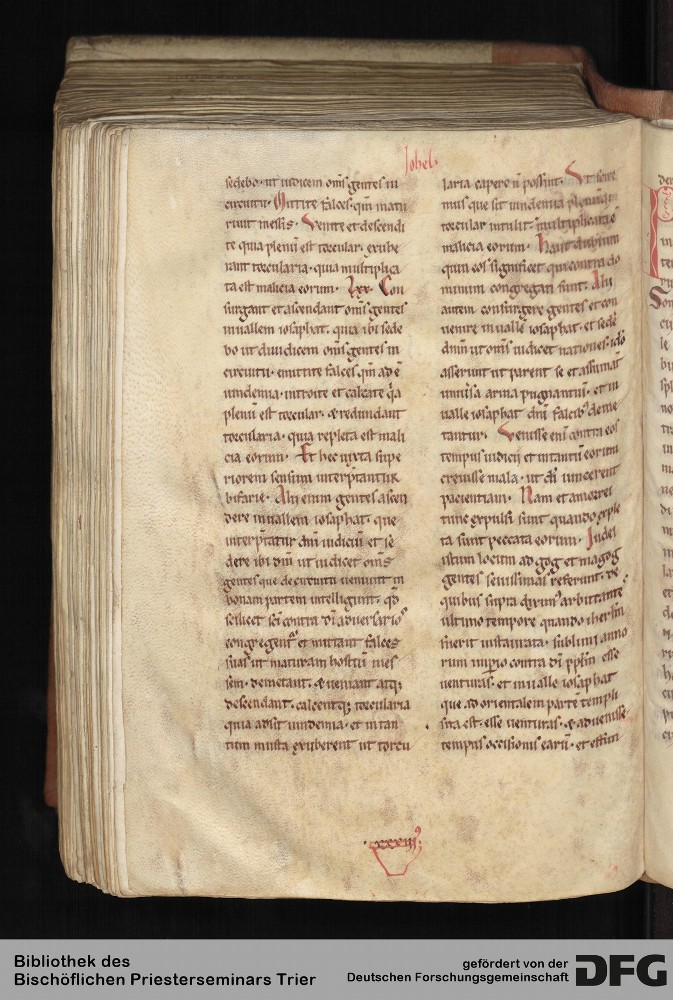 Iohel.
sedebo. ut iudicem om̅s gentes in
circuitu. Mittite falces. qm̅ matu
ruit messis. Venite et descendi
te quia plenu̅ est torcular. exube
rant torcularia. quia multiplica
ta est malicia eorum. Lxx. Con
surgant et ascendant om̅s gentes
in uallem iosaphat. quia ibi sede
bo ut diiudicem om̅s gentes in
circuitu. emittite falces qm̅ ad e̅
uindemia. introite et calcate q̅a
plenu̅ est torcular. & redundant
torcularia. quia repleta est mali
cia eorum. Et hec iuxta supe
riorem sensum interp̅tantur
bifarie. Alii enim gentes ascen
dere in uallem iosaphat. que
interp̅tatur dn̅i iudiciu̅ et se
dere ibi dn̅m ut iudicet om̅s
gentes que de circuitu ueniunt in
bonam partem intelligunt. qd̅
scilicet sc̅i contra di̅ aduersarios
congregent̅ et mittant falces
suas ut maturam hostiu̅ mes
sem. demetant. & ueniant atq;
descendant. calcentq; torcularia
quia adsit uindemia. et in tan
tum musta exuberent ut torcu
laria capere n̅ possint. Ut scire
mus que sit uindemia plenu̅q;
torcular intulit. multiplicata e̅
malicia eorum. Haut dubium
quin eos significet qui contra do
minum congregati sunt. Alii
autem consurgere gentes et con
uenire in ualle̅ iosaphat. et sede̅
dn̅m ut om̅s iudicet nationes. ido̅
asserunt ut parent se et assumant
uniu̅sa arma pugnantiu̅. et in
ualle iosaphat dn̅i falcib; deme
tantur. Venisse eni̅ contra eos
tempus iudicii et intantu̅ eorum
creuisse mala. ut di̅ uincerent
pacientiam. Nam et amorrei
tunc expulsi sunt quando exple
ta sunt peccata eorum. Iudei
istum locum ad gog et magog
gentes seuissimas referunt. de
quibus supra diximus arbitrantes
ultimo tempore quando ihrl̅m
fuerit instaurata. sub mille anno
rum imperio contra di̅ pp̅lm̅ esse
uenturas. et in ualle iosaphat
que ad orientalem parte̅ templi
sita est. esse uenturas. & aduenisse
tempus occisionis earu̅. et effusi
.xxxiii;
Bibliothek des
Bischöflichen Priesterseminars Trier
gefördert von der
Deutschen Forschungsgemeinschaft
DFG